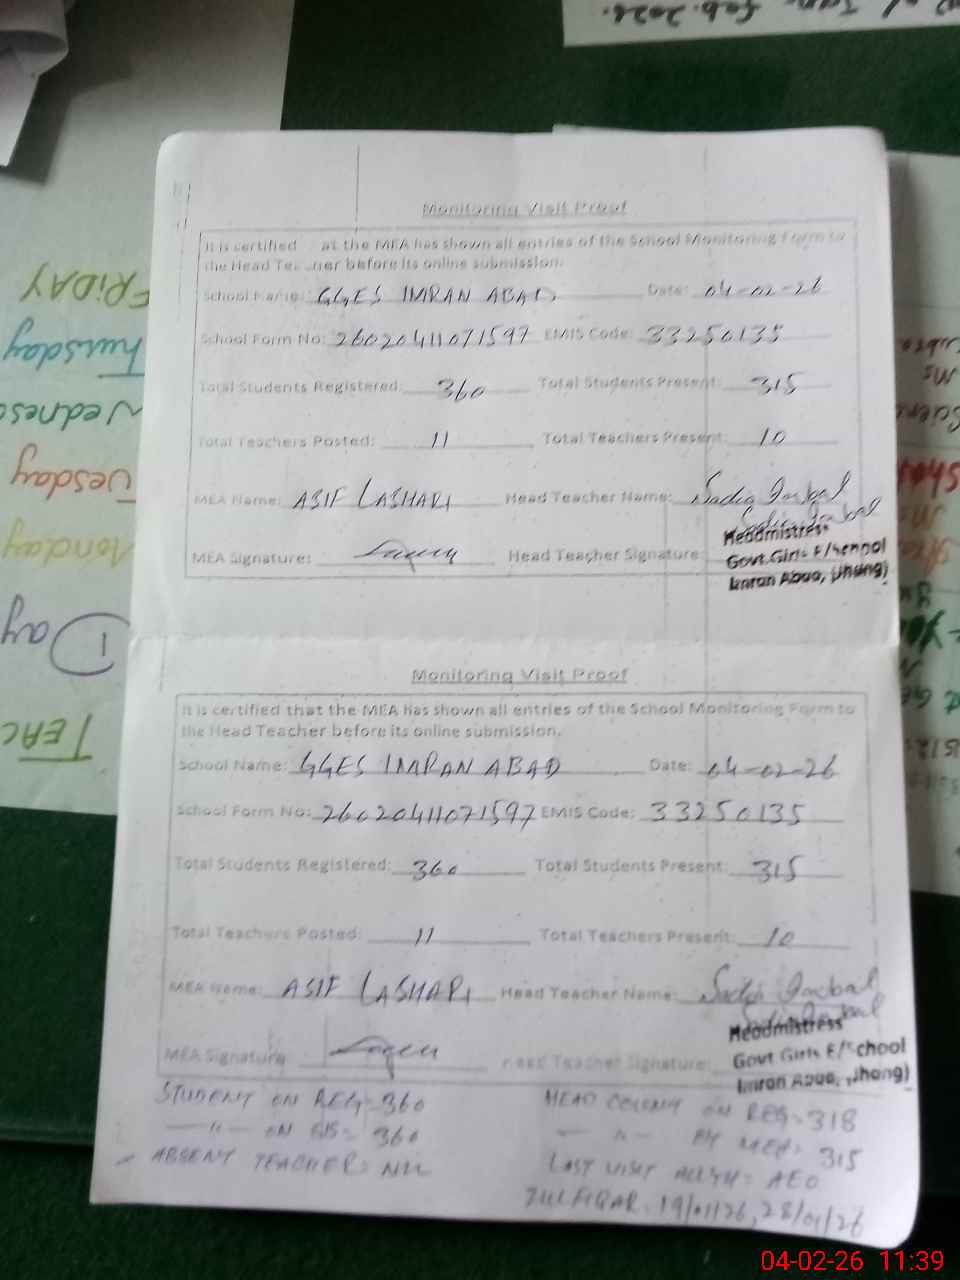 Feb. 2026.
FRIDAY
Thursday
Tuesday
Monday
Day
Monitoring Visit Proof
It is certified at the MEA has shown all entries of the School Monitoring Form to
the Head before its online submission.
School Name: GGES IMRAN ABAD Date: 04-02-26
School Form No: 26020411071597 EMIS Code: 33250135
Total Students Registered: 360 Total Students Present: 315
Total Teachers Posted: 11 Total Teachers Present: 10
MEA Name: ASIF LASHARI Head Teacher Name: Sadia Iqbal
MEA Signature: Head Teacher Signature:
Headmistress
Govt. Girls E/School
Imran Abad, (Jhang)
Monitoring Visit Proof
It is certified that the MEA has shown all entries of the School Monitoring Form to
the Head Teacher before its online submission.
School Name: GGES IMRAN ABAD Date: 04-02-26
School Form No: 26020411071597 EMIS Code: 33250135
Total Students Registered: 360 Total Students Present: 315
Total Teachers Posted: 11 Total Teachers Present: 10
MEA Name: ASIF LASHARI Head Teacher Name: Sadia Iqbal
MEA Signature Teacher Signature:
Headmistress
Govt Girls E/School
Imran Abad, (Jhang)
STUDENT ON REG= 360 HEAD COUNT ON REG= 318
—"— ON SIS= 360 —"— BY MEA= 315
ABSENT TEACHER= NIL LAST VISIT AEO
ZULFIQAR. 19/01/26, 28/01/26
04-02-26 11:39